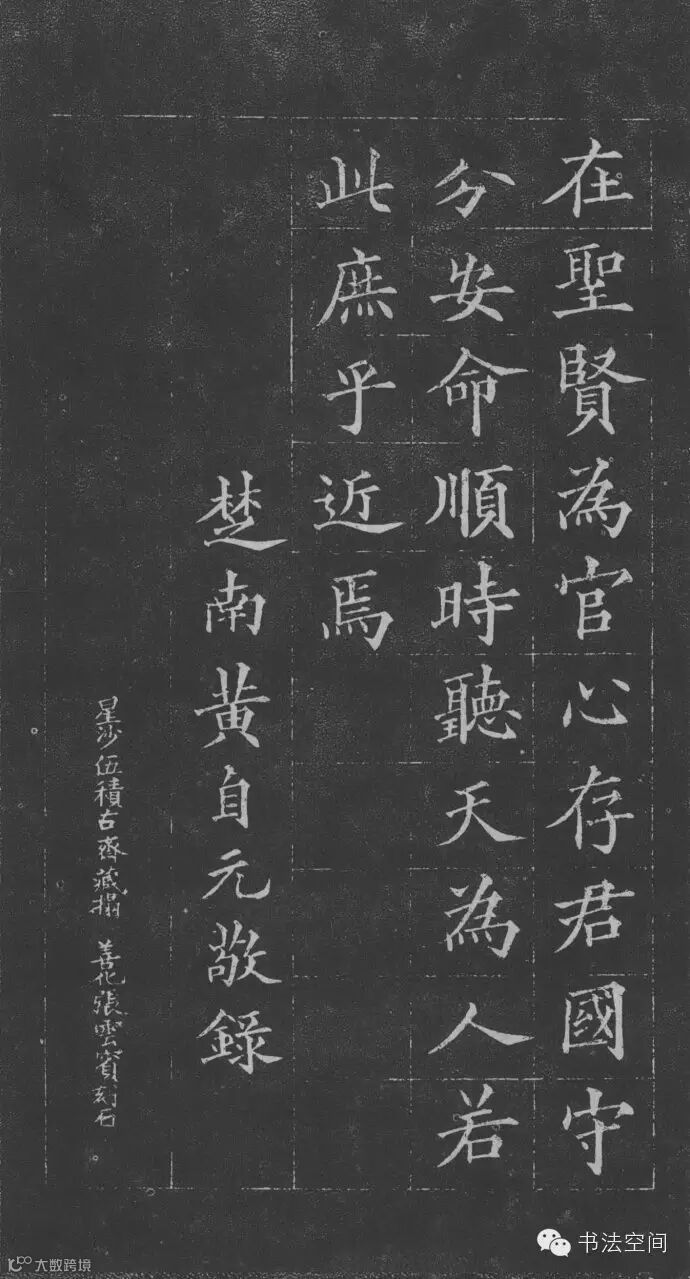 在聖賢為官心存君國守
分安命順時聽天為人若
此庶乎近焉
楚南黄自元敬錄
星沙伍積古齋藏搨 善化張雲賓刻石
书法空间
大数跨境